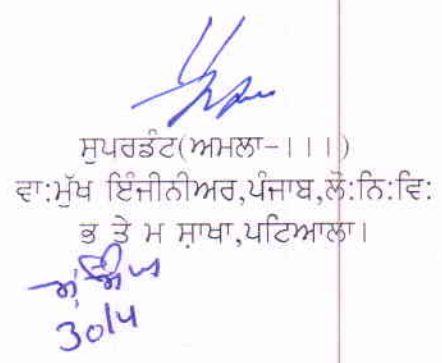 ਸੁਪਰਡੰਟ(ਅਮਲਾ-।।।)
ਵਾ:ਮੁੱਖ ਇੰਜੀਨੀਅਰ,ਪੰਜਾਬ,ਲੋ:ਨਿ:ਵਿ:
ਭ ਤੇ ਮ ਸ਼ਾਖਾ,ਪਟਿਆਲਾ।
30/4